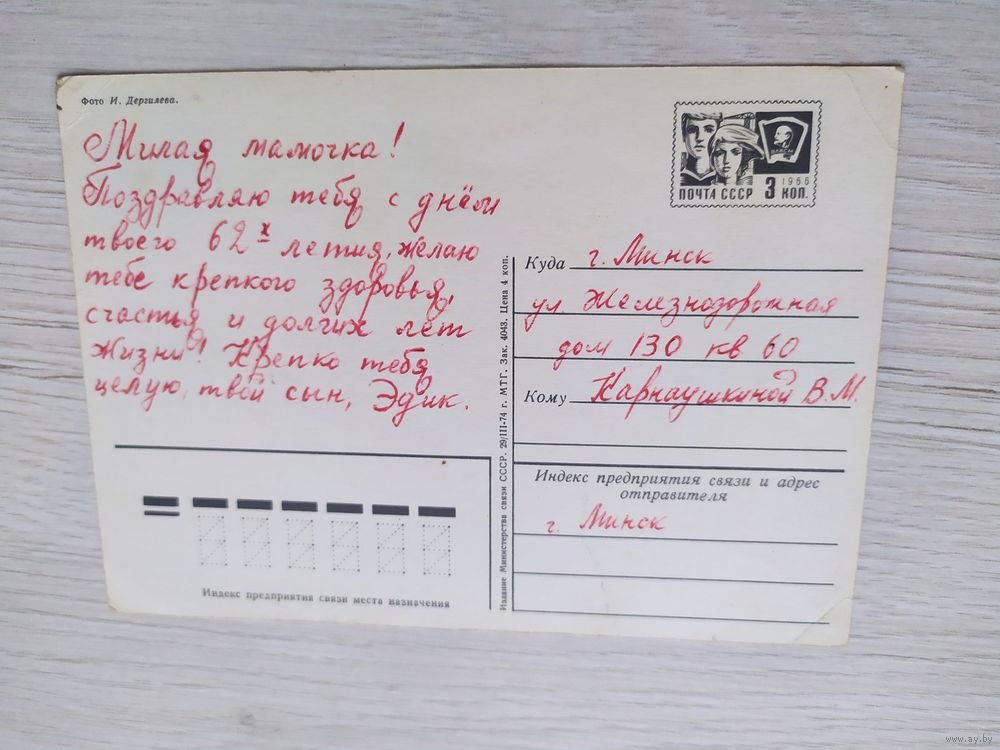 Фото И. Дергилева.
Милая мамочка!
Поздравляю тебя с днём
твоего 62х летия, желаю
тебе крепкого здоровья,
счастья и долгих лет
жизни! Крепко тебя
целую, твой сын, Эдик.
Индекс предприятия связи места назначения
Издание Министерства связи СССР. 29/III-74 г. МТГ. Зак. 4043. Цена 4 коп.
ВЛКСМ
1966
ПОЧТА СССР 3 КОП.
Куда г. Минск
ул. Железнодорожная
дом 130 кв 60
Кому Карнаушкиной В.М.
Индекс предприятия связи и адрес
отправителя
г. Минск
www.ay.by